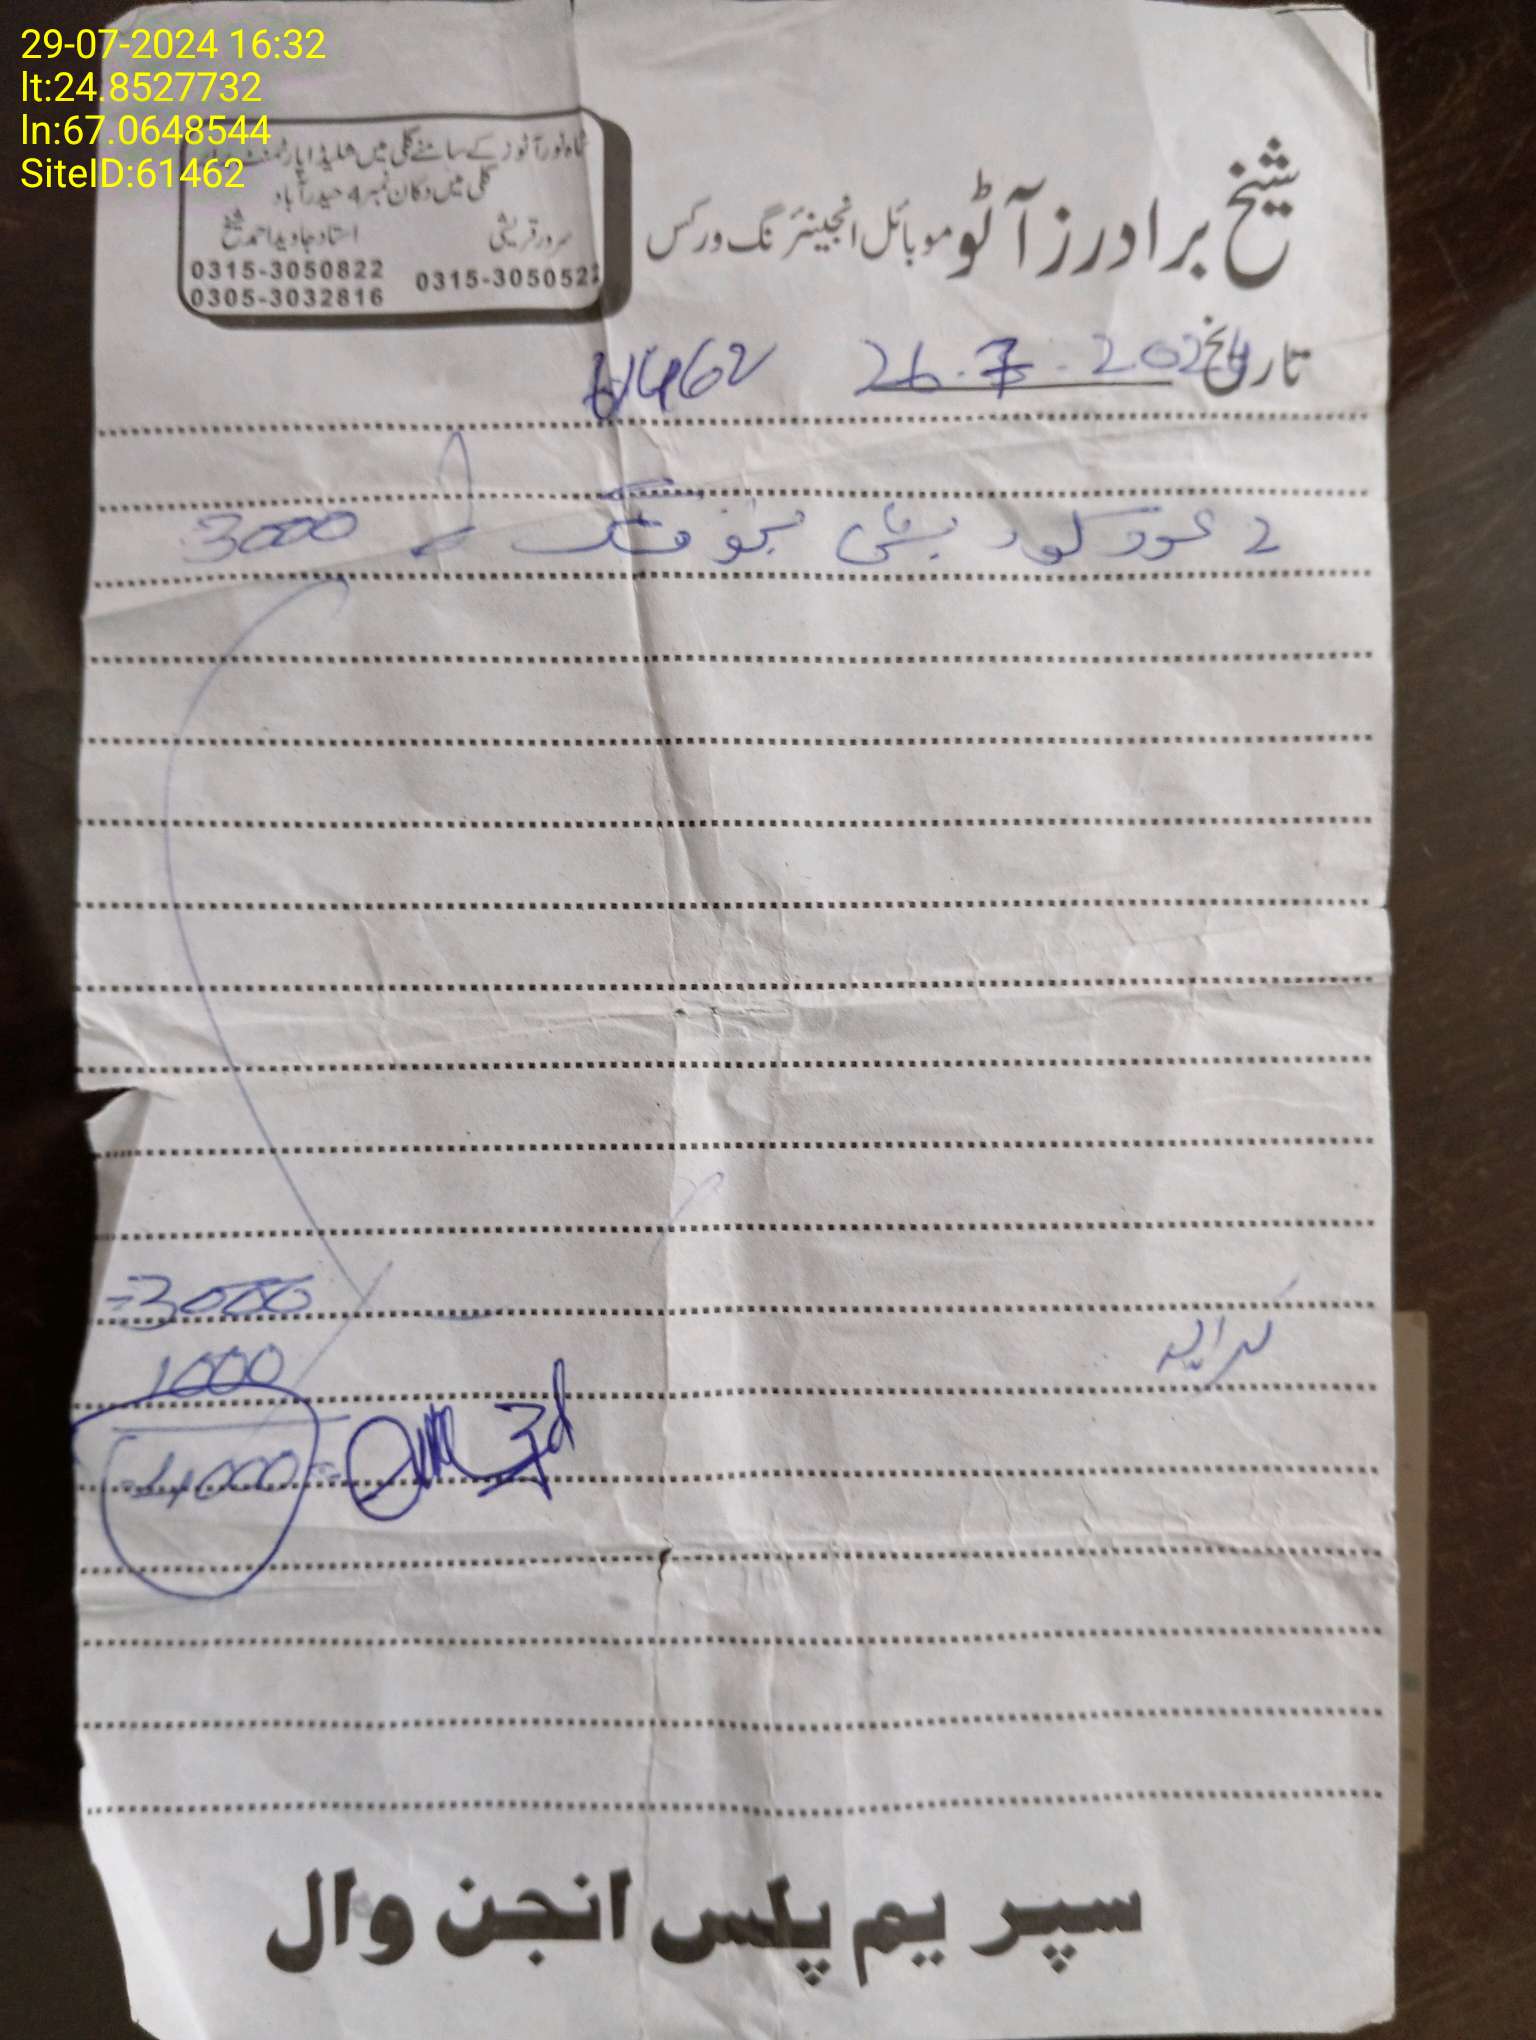 29-07-2024 16:32
lt:24.8527732
ln:67.0648544
SiteID:61462
شیخ برادرز آٹو موبائل انجینئرنگ ورکس
ماہ نور آٹوز کے سامنے گلی میں شلیڈ اپارٹمنٹ
گلی میں دکان نمبر 4 حیدرآباد
سرور قریشی
0315-305052
استاد جاوید احمد شیخ
0315-3050822
0305-3032816
تاریخ 26.7.2024
61462
2 عدد 3000
=3000
کرایہ 1000
=4000=
سپریم پلس انجن وال